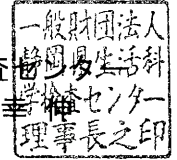 一般財団法人
静岡県生活科
学検査センター
理事長之印
センター
幸